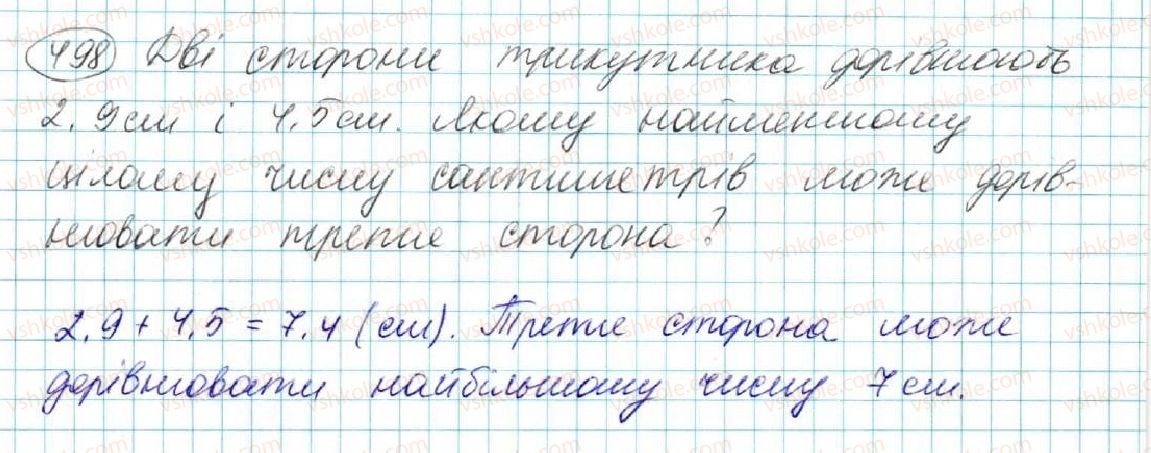 498 Дві сторони трикутника дорівнюють
2,9 см і 4,5 см. Якому найменшому
цілому числу сантиметрів може дорів-
нювати третя сторона?
2,9 + 4,5 = 7,4 (см). Третя сторона може
дорівнювати найбільшому числу 7 см.